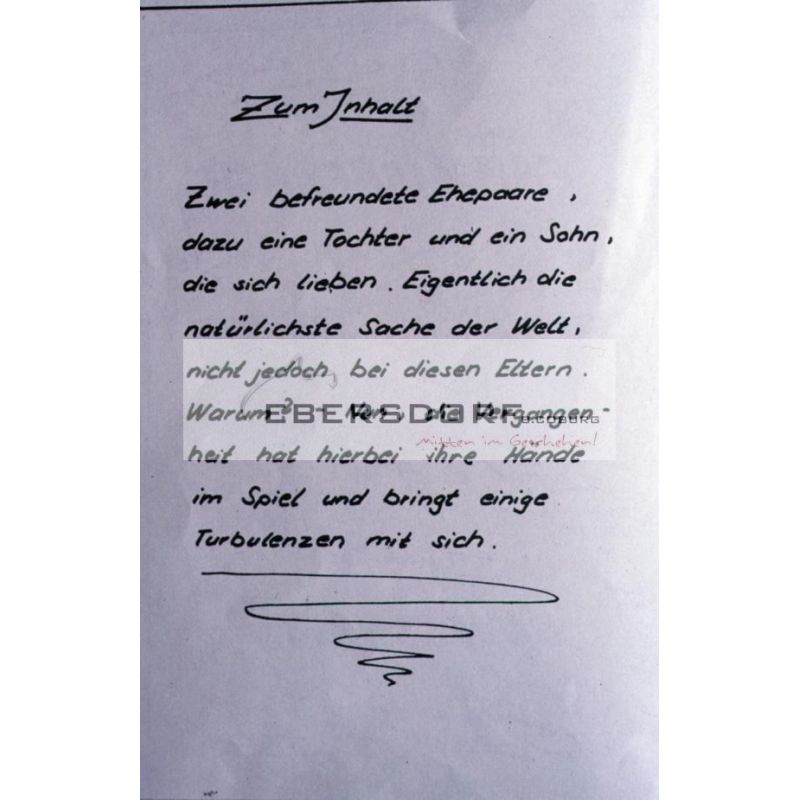 Zum Inhalt
Zwei befreundete Ehepaare,
dazu eine Tochter und ein Sohn,
die sich lieben. Eigentlich die
natürlichste Sache der Welt,
nicht jedoch, bei diesen Eltern.
Warum? - Nun, die Vergangen-
EBERSDORF B.COBURG
mitten im Geschehen!
heit hat hierbei ihre Hände
im Spiel und bringt einige
Turbulenzen mit sich.